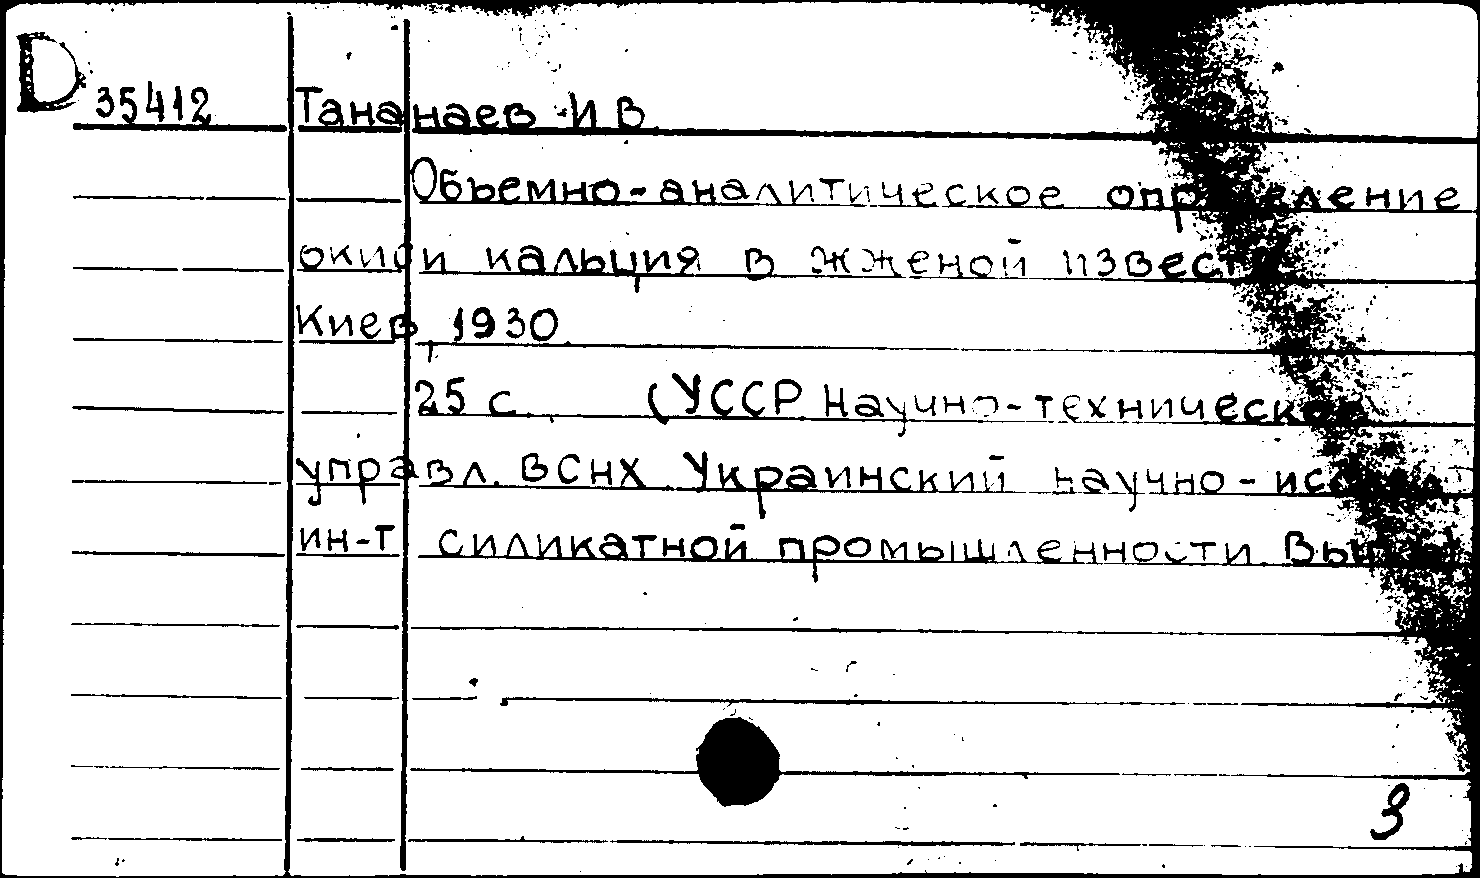 D 35412 Тананаев И В
Обьемно-аналитическое определение
окиси кальция в жженой извести
Киев, 1930
25 с. (УССР Научно-техническое
управл. ВСНХ. Украинский научно-
ин-т силикатной промышленности.
3